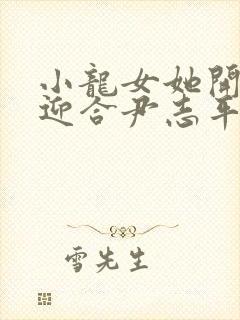 小龍女她開
迎合尹志平
雪先生